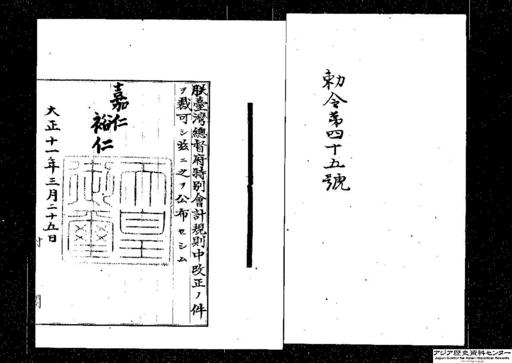 勅令第四十五號
朕臺灣總督府特別會計規則中改正ノ件
ヲ裁可シ茲ニ之ヲ公布セシム
嘉仁
裕仁
天皇
御璽
大正十一年三月二十五日
アジア歴史資料センター
Japan Center for Asian Historical Records